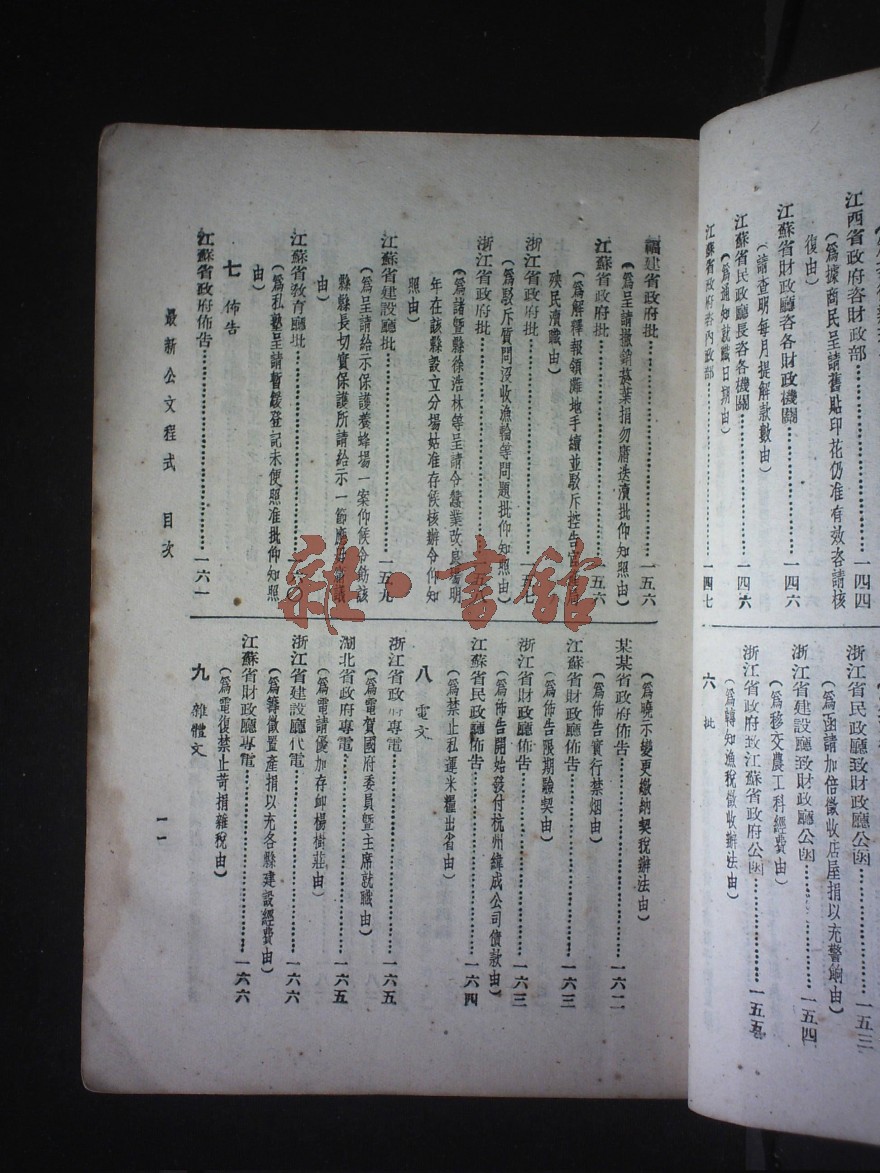 江西省政府咨財政部……一四四
（為據商民呈請舊貼印花仍准有效咨請核
復由）
江蘇省財政廳咨各財政機關……一四六
（請查明每月提解款數由）
江蘇省民政廳長咨各機關……一四六
（為通知就職日期由）
江蘇省政府咨內政部……一四七
浙江省民政廳致財政廳公函……一五三
（為函請加倍徵收店屋捐以充警餉由）
浙江省建設廳致財政廳公函……一五四
（為移交農工科經費由）
浙江省政府致江蘇省政府公函……一五五
（為轉知漁稅徵收辦法由）
六 批
福建省政府批……一五六
（為呈請撤銷菸葉捐勿庸迭瀆批仰知照由）
江蘇省政府批……一五六
（為解釋報領灘地手續並駁斥控告官
殃民瀆職由）
浙江省政府批……一五七
（為駁斥質問沒收漁輪等問題批仰知照由）
浙江省政府批……一五八
（為諸暨縣徐浩林等呈請令蠶業改良場明
年在該縣設立分場姑准存候核辦令仰知
照由）
江蘇省建設廳批……一五九
（為呈請給示保護養蜂場一案仰候令飭該
縣縣長切實保護所請給示一節應毋庸議
由）
江蘇省教育廳批……一六〇
（為私塾呈請暫緩登記未便照准批仰知照
由）
七 佈告
江蘇省政府佈告……一六一
（為曉示變更繳納契稅辦法由）
某某省政府佈告……一六二
（為佈告實行禁烟由）
江蘇省財政廳佈告……一六三
（為佈告限期驗契由）
浙江省財政廳佈告……一六三
（為佈告開始發付杭州緯成公司債款由）
江蘇省民政廳佈告……一六四
（為禁止私運米糧出省由）
八 電文
浙江省政府專電……一六五
（為電賀國府委員暨主席就職由）
湖北省政府專電……一六五
（為電請優加存卹楊樹莊由）
浙江省建設廳代電……一六六
（為籌徵置產捐以充各縣建設經費由）
江蘇省財政廳專電……一六六
（為電復禁止苛捐雜稅由）
九 雜體文
最新公文程式 目次
一一
雜·書館